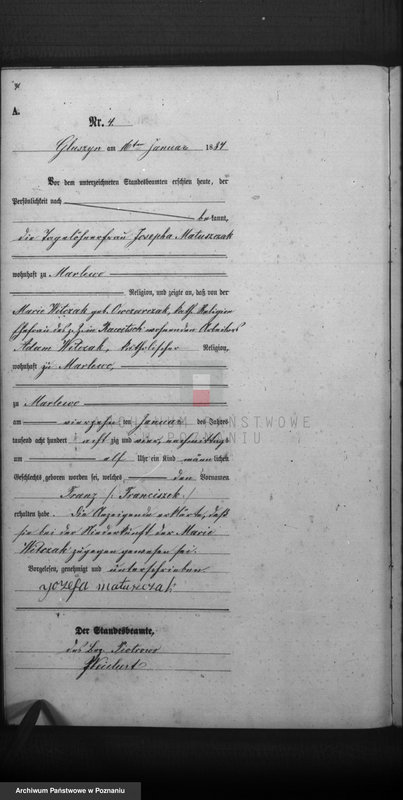 A.
Nr. 4.
Gluszyn am 16ten Januar 1884
Vor dem unterzeichneten Standesbeamten erschien heute, der
Persönlichkeit nach
bekannt,
die Tagelöhnerfrau Josepha Matuszczak
wohnhaft zu Marlewo
Religion, und zeigte an, daß von der
Marie Witczak geb. Owczarczak, kath. Religion
Ehefrau des z. Z. in Rawitsch wohnenden Arbeiters
Adam Witczak, katholischer Religion,
wohnhaft zu Marlewo,
zu Marlewo
am vierzehnten Januar des Jahres
tausend acht hundert achtzig und vier, nachmittags
um elf Uhr ein Kind männlichen
Geschlechts geboren worden sei, welches den Vornamen
Franz /: Franciszek :/
erhalten habe. Die Anzeigende erklärte, daß
sie bei der Niederkunft der Marie
Witczak zugegen gewesen sei.
Vorgelesen, genehmigt und unterschrieben
Jozefa matuszczak
Der Standesbeamte,
des Bez. Piotrowo
ARCHIWUM PAŃSTWOWE
W POZNANIU
Archiwum Państwowe w Poznaniu